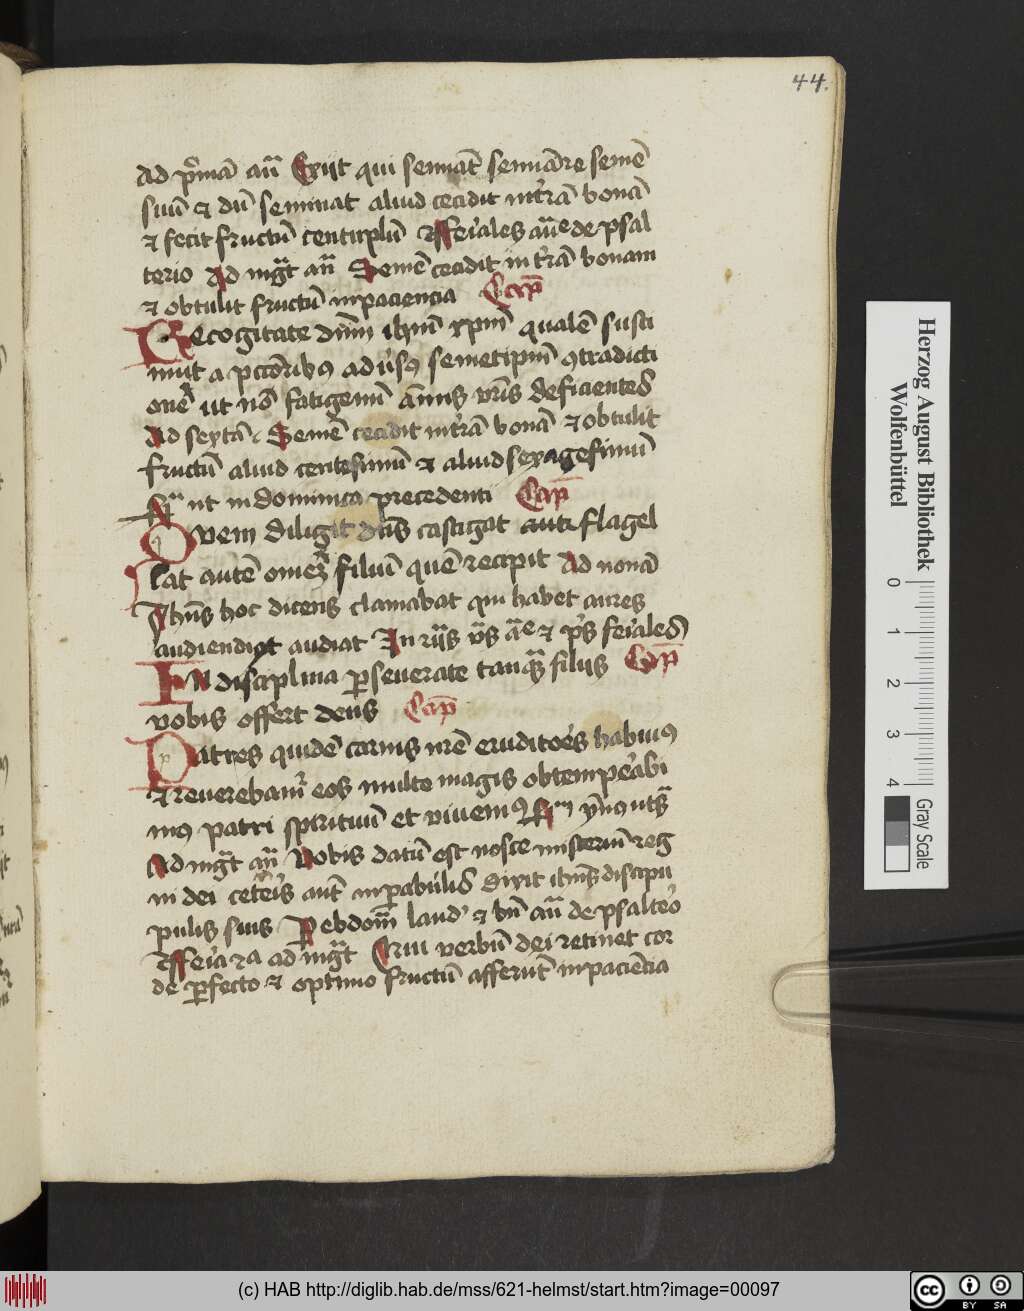 44.
Ad p̄mā añ Exijt qui semīat semīare semē
suū et dū seminat aliud cecidit in t̄rā bonā
et fecit fructū centuplū feīales de psal
terio Ad mḡt añ Semē cecidit in t̄rā bonam
et obtulit fructū in paciencia Cap̄
Recogitate dn̄m ihm̄ xpm̄ qualē susti
nuit a pccōribꝰ adusꝰ semetipm̄ ꝯtradicti
onē ut nō fatigemī aīmis vr̄is deficientes
Ad sextā Semē cecidit in t̄rā bonā et obtulit
fructū aliud centesimū et aliud sexagesimū
ut in dominica precedenti Cap̄
Quem diligit dn̄s castigat flagel
lat autē omēz filiū quē recipit Ad nonā
Ihūs hoc dicens clamabat qui habet aures
audiendi audiat In ījs v̄s et p̄s feīales
In disciplina p̄seuerate tanq̄ filijs Cap̄
vobis offert deus Cap̄
Patres quidē carnis nr̄e eruditoēs habuimꝰ
et reuerebam̄ eos multo magis obtempeābi
mꝰ patri spirituū et viuemꝰ
Ad mḡt añ Vobis datū est nosce misteriū reg
ni dei cet̄eis aut̄ in p̄abulis dixit ihūs discipu
pulis suis laud et bn̄ añ de psalteō
feīa ad mḡt Qui verbū dei retinet cor
de p̄fecto et optimo fructū afferūt in paciēcia
Herzog August Bibliothek
Wolfenbüttel
0 1 2 3 4
Gray Scale
(c) HAB http://diglib.hab.de/mss/621-helmst/start.htm?image=00097
cc BY SA